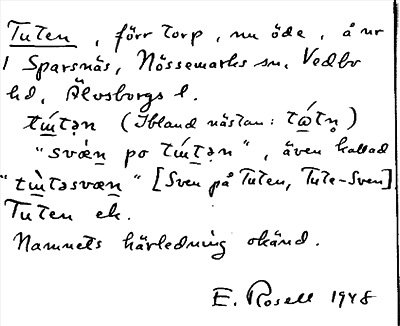 Tuten, förr torp, nu öde, å nr
1 Sparsnäs, Nössemarks sn, Vedbo
hd, Älvsborgs l.
tɯ́tən (Ibland nästan: tώtn̥)
"svæ̀n po tɯ́tən", även kallad
"tɯ̀təsvæn" [Sven på Tuten, Tute-Sven]
Tuten ek.
Namnets härledning okänd.
E. Rosell 1948